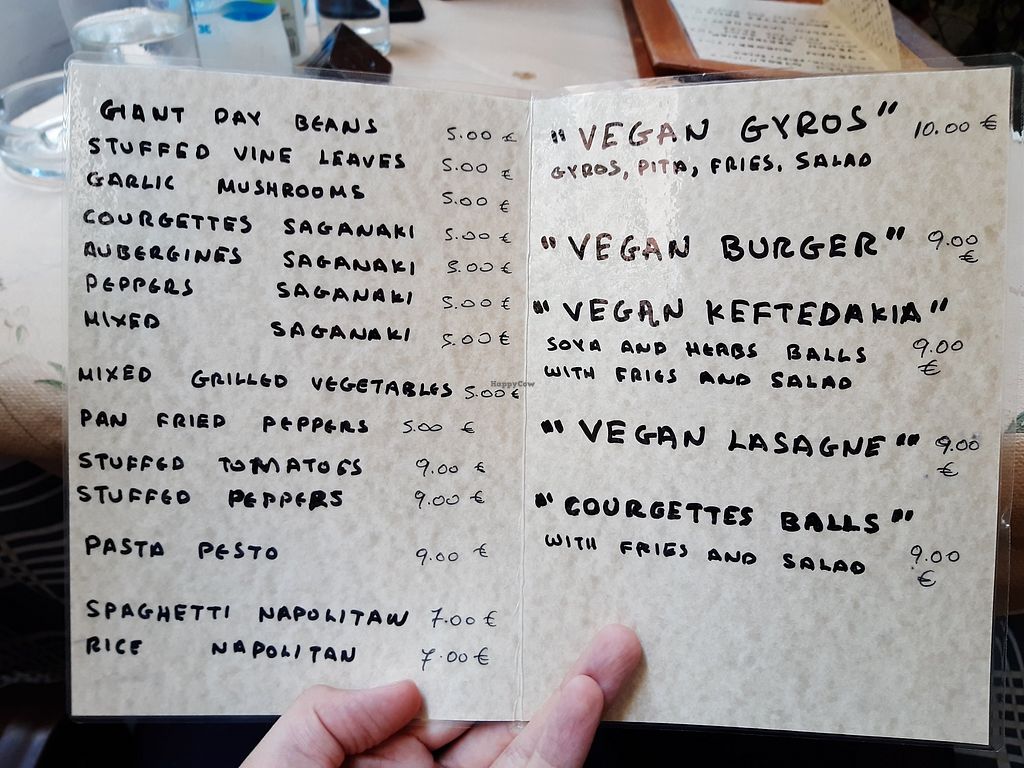 GIANT DAY BEANS 5.00 €
STUFFED VINE LEAVES 5.00 €
GARLIC MUSHROOMS 5.00 €
COURGETTES SAGANAKI 5.00 €
AUBERGINES SAGANAKI 5.00 €
PEPPERS SAGANAKI 5.00 €
MIXED SAGANAKI 5.00 €
MIXED GRILLED VEGETABLES 5.00 €
PAN FRIED PEPPERS 5.00 €
STUFFED TOMATOES 9.00 €
STUFFED PEPPERS 9.00 €
PASTA PESTO 9.00 €
SPAGHETTI NAPOLITAN 7.00 €
RICE NAPOLITAN 7.00 €
"VEGAN GYROS" 10.00 €
GYROS, PITA, FRIES, SALAD
"VEGAN BURGER" 9.00 €
"VEGAN KEFTEDAKIA"
SOYA AND HERBS BALLS 9.00 €
WITH FRIES AND SALAD
"VEGAN LASAGNE" 9.00 €
"COURGETTES BALLS"
WITH FRIES AND SALAD 9.00 €
HappyCow